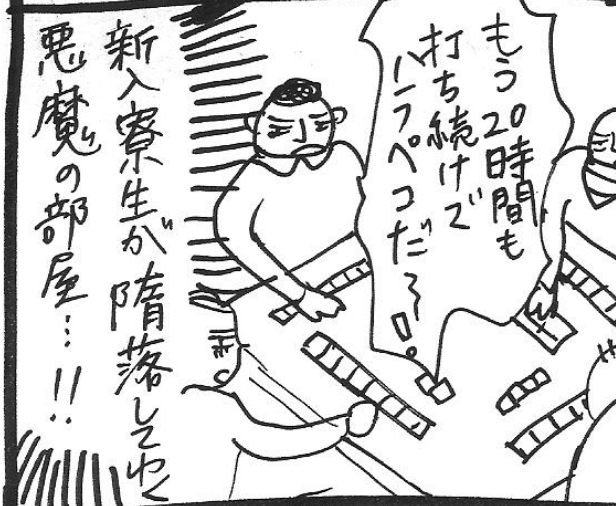 もう20時間も
打ち続けで
ハラペコだ〜!!
新入寮生が堕落してゆく
悪魔の部屋…!!